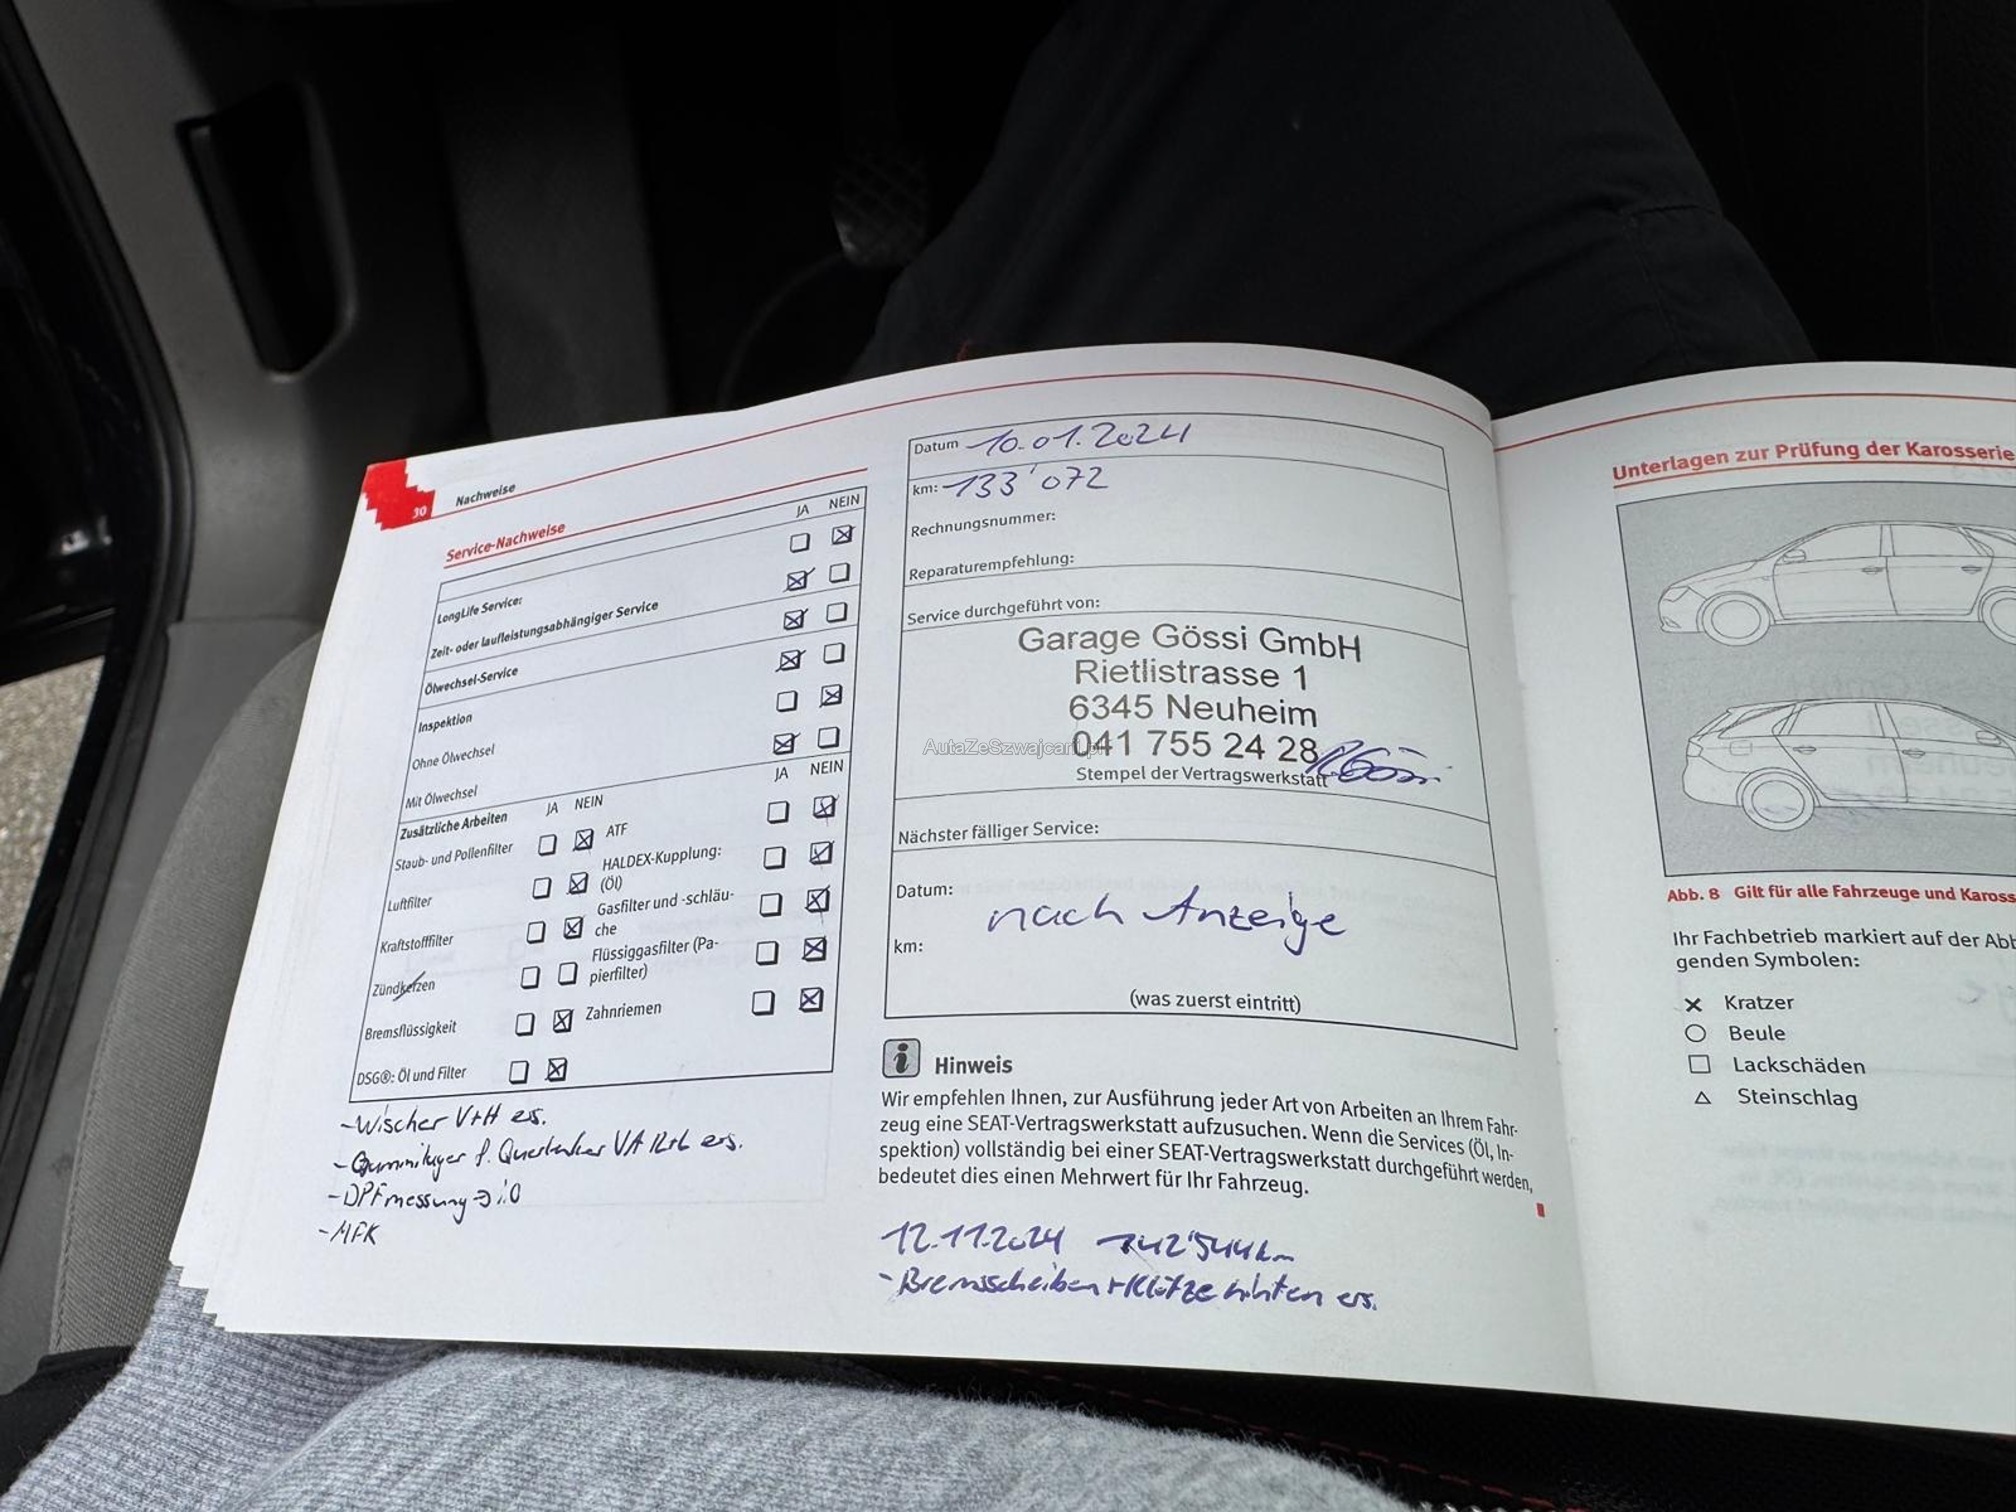 30
Nachweise
Service-Nachweise
JA NEIN
LongLife Service:
Zeit- oder laufleistungsabhängiger Service
Ölwechsel-Service
Inspektion
Ohne Ölwechsel
Mit Ölwechsel
JA NEIN
Zusätzliche Arbeiten JA NEIN
Staub- und Pollenfilter
ATF
Luftfilter
HALDEX-Kupplung:
(Öl)
Kraftstofffilter
Gasfilter und -schläu-
che
Zündkerzen
Flüssiggasfilter (Pa-
pierfilter)
Bremsflüssigkeit
Zahnriemen
DSG®: Öl und Filter
- Wischer V+H ers.
- Gummilager f. Querlenker VA R+L ers.
- DPF messung → i.O
- MFK
Datum 10.01.2024
km: 133'072
Rechnungsnummer:
Reparaturempfehlung:
Service durchgeführt von:
Garage Gössi GmbH
Rietlistrasse 1
6345 Neuheim
041 755 24 28
Stempel der Vertragswerkstatt
AutaZeSzwajcarii.pl
Nächster fälliger Service:
Datum:
nach Anzeige
km:
(was zuerst eintritt)
i Hinweis
Wir empfehlen Ihnen, zur Ausführung jeder Art von Arbeiten an Ihrem Fahr-
zeug eine SEAT-Vertragswerkstatt aufzusuchen. Wenn die Services (Öl, In-
spektion) vollständig bei einer SEAT-Vertragswerkstatt durchgeführt werden,
bedeutet dies einen Mehrwert für Ihr Fahrzeug.
12.11.2024 142'544km
- Bremsscheiben + Klötze hinten ers.
Unterlagen zur Prüfung der Karosserie
Abb. 8 Gilt für alle Fahrzeuge und Kaross
Ihr Fachbetrieb markiert auf der Abb
genden Symbolen:
Kratzer
Beule
Lackschäden
Steinschlag